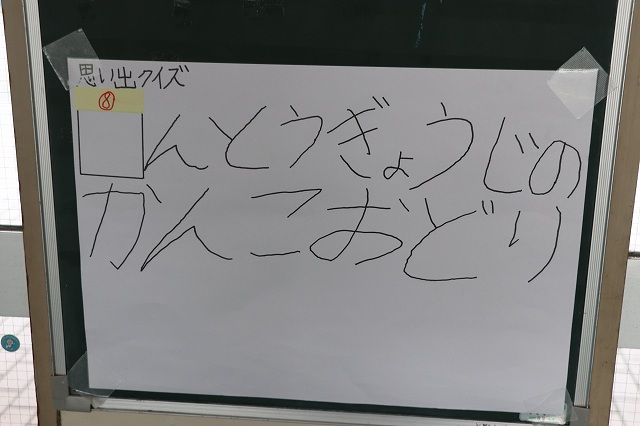 思い出クイズ
⑧
□んとうぎょうじの
かんこおどり